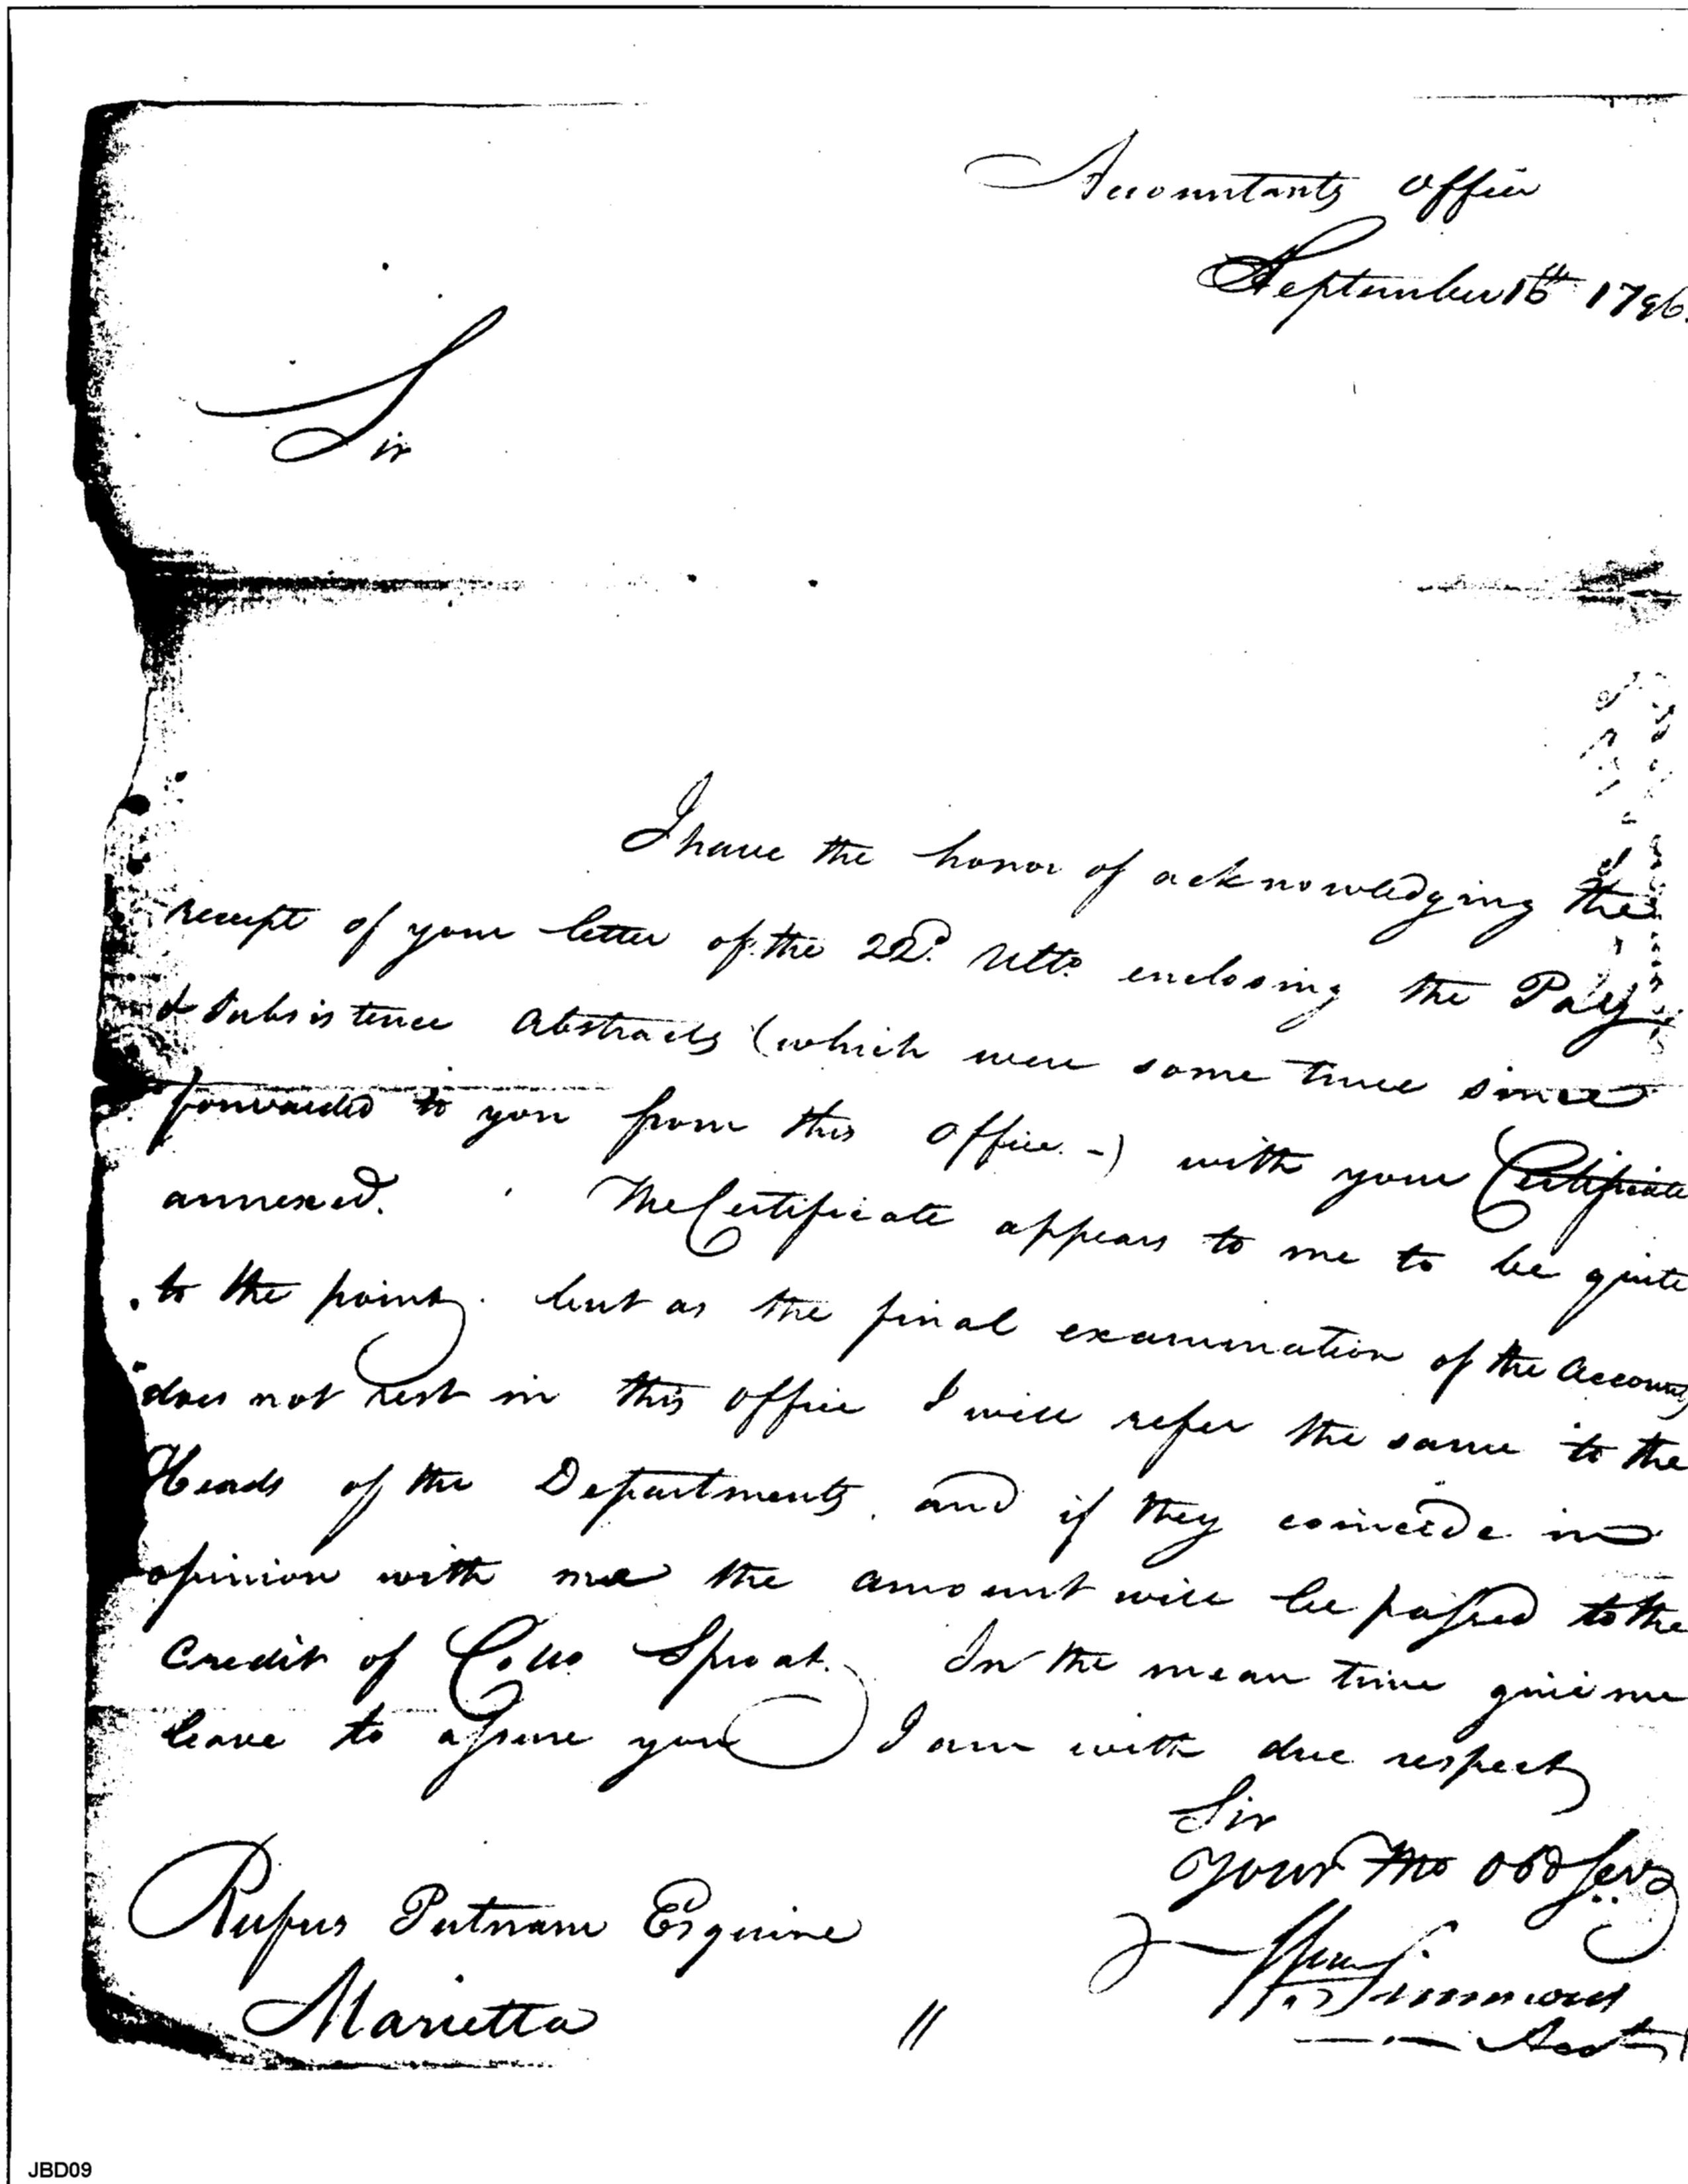 Accountants Office
September 16th 1796.
Sir
I have the honor of acknowledging the
receipt of your letter of the 22d. Ulto. enclosing the Pay
& Subsistence Abstracts (which were some time since
forwarded to you from this Office.-) with your Certificate
annexed. The Certificate appears to me to be quite
to the point. but as the final examination of the Accounts
does not rest in this Office I will refer the same to the
Heads of the Departments, and if they coincide in
opinion with me the amount will be passed to the
Credit of Collo Sproat. In the mean time give me
leave to assure you I am with due respect
Sir
Your Mo Obd Servt
Rufus Putnam Esquire
Wm Simmons
Marietta //
Acct
JBD09